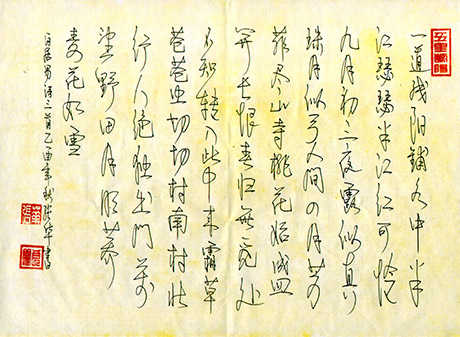 一道残阳铺水中半
江瑟瑟半江红可怜
九月初三夜露似真
珠月似弓人间四月芳
菲尽山寺桃花始盛
开长恨春归无觅处
不知转入此中来霜草
苍苍虫切切村南村北
行人绝独出门前
望野田月明荞
麦花如雪
白居易诗三首乙酉年秋华书